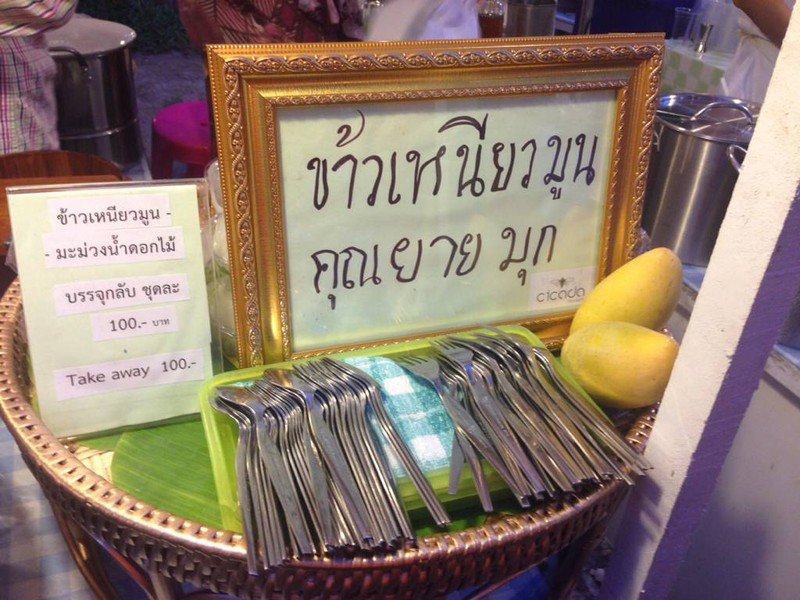 ข้าวเหนียวมูน -
- มะม่วงน้ำดอกไม้
บรรจุกลับ ชุดละ
100.- บาท
Take away 100.-
ข้าวเหนียวมูน
คุณยาย มุก
cicada